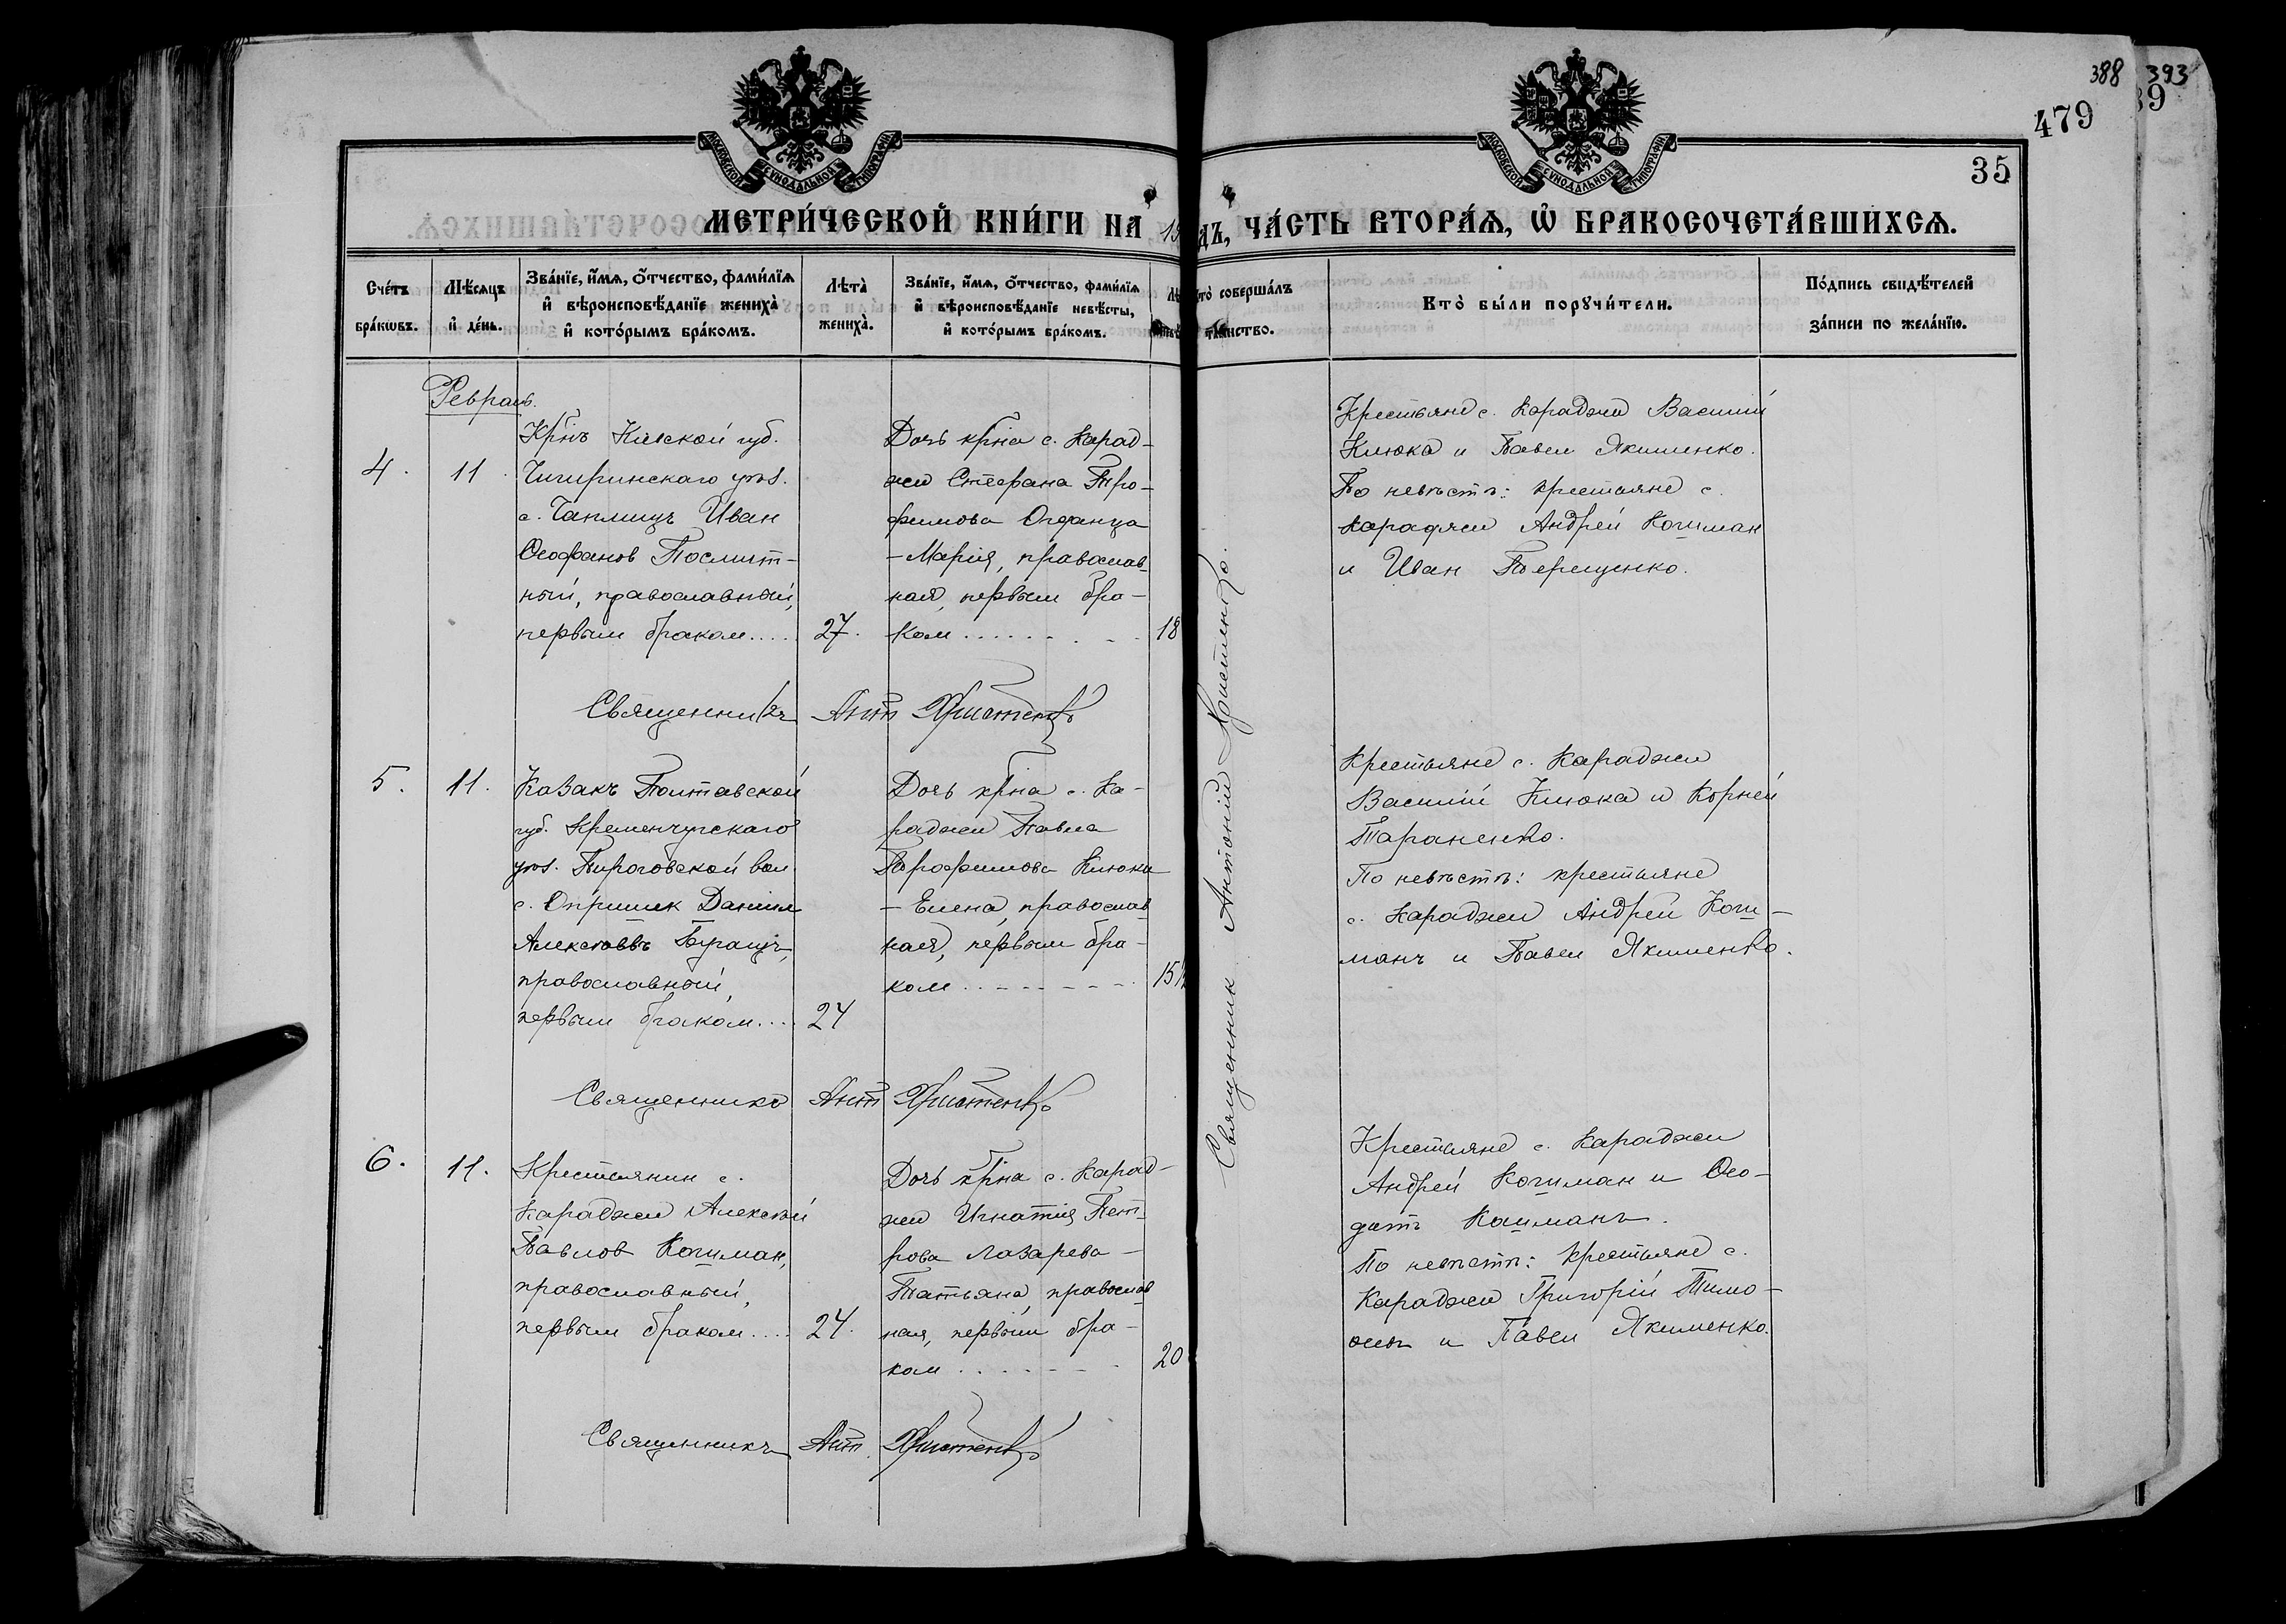 388 393
479 39
35
МОСКОВСКОЙ СѴНОДАЛЬНОЙ ТИПОГРАФІИ
МОСКОВСКОЙ СѴНОДАЛЬНОЙ ТИПОГРАФІИ
МЕТРИ́ЧЕСКОЙ КНИ́ГИ НА 19
ДЪ, ЧА́СТЬ ВТОРА́Ѧ, Ѽ БРАКОСОЧЕТА́ВШИХСѦ.
Сче́тъ бра́кѡвъ.
Мѣ́сѧцъ и҆ де́нь.
Зва́нїе, и҆́мѧ, ѻ҆́тчество, фами́лїѧ
и҆ вѣроисповѣ́данїе жениха̀
и҆ кото́рымъ бра́комъ.
Лѣта̀ жениха̀.
Зва́нїе, и҆́мѧ, ѻ҆́тчество, фами́лїѧ
и҆ вѣроисповѣ́данїе невѣ́сты,
и҆ кото́рымъ бра́комъ.
то̀ соверша́лъ
таинство.
Кто̀ бы́ли порꙋчи́тели.
По́дпись свидѣ́телей
за́писи по жела́нїю.
Февраль.
4. 11.
Крнъ Кіевской губ.
Чигиринскаго уѣз.
с. Чаплищъ Иван
Ѳеофанов Посмит-
ный, православный,
первым браком..... 27.
Дочь крна с. Карад-
жи Стефана Тро-
фимова
- Марія, православ-
ная, первым бра-
ком....... 18
Крестьяне с. Караджи Василій
Клюка и Павел Якименко.
По невѣстѣ: крестьяне с.
Караджи Андрей Кошман
и Иван Терещенко.
Священникъ Ант Христенко
5. 11.
Казакъ Полтавской
губ. Кременчугскаго
уѣз. Пироговской вол.
с. Опришек Даниил
Алексѣевъ
православный,
первым браком.... 24
Дочь крна с. Ка-
раджи Павла
Трофимова Клюки
- Елена, православ-
ная, первым бра-
ком........ 15½
Крестьяне с. Караджи
Василий Клюка и Корней
Тараненко.
По невѣстѣ: крестьяне
с. Караджи Андрей Кош-
манъ и Павел Якименко.
Священникъ Ант Христенко
6. 11.
Крестьянин с.
Караджи Алексѣй
Павлов Кошман,
православный,
первым браком.... 24.
Дочь крна с. Карад-
жи Игнатія Пет-
рова Лазарева -
Татьяна, православ-
ная, первым бра-
ком....... 20
Крестьяне с. Караджи
Андрей Кошман и Ѳео-
датъ Кошманъ.
По невѣстѣ: крестьяне с.
Караджи Григорій Тимо-
и Павел Якименко.
Священникъ Ант. Христенко
Священник Антоній Христенко.